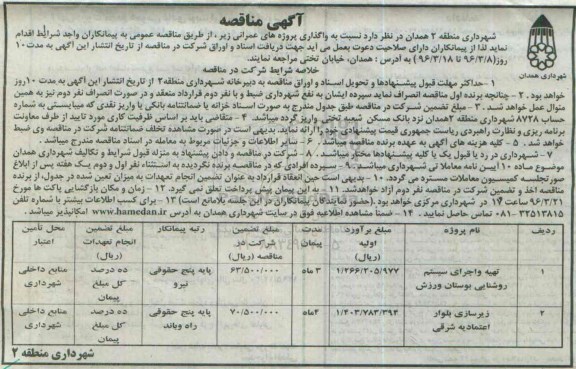 آگهی مناقصه
شهرداری منطقه ۲ همدان در نظر دارد نسبت به واگذاری پروژه های عمرانی زیر، از طریق مناقصه عمومی به پیمانکاران واجد شرایط اقدام
نماید لذا از پیمانکاران دارای صلاحیت دعوت بعمل می آید جهت دریافت اسناد و اوراق شرکت در مناقصه از تاریخ انتشار این آگهی به مدت ۱۰
روز (۹۶/۳/۸ تا ۹۶/۳/۱۸) به آدرس : همدان، خیابان تختی مراجعه نمایند.
شهرداری همدان
خلاصه شرایط شرکت در مناقصه
۱ – حداکثر مهلت قبول پیشنهادها و تحویل اسناد و اوراق مناقصه به دبیرخانه شهرداری منطقه ۲ از تاریخ انتشار این آگهی به مدت ۱۰ روز
خواهد بود. ۲ – چنانچه برنده اول مناقصه انصراف نماید سپرده ایشان به نفع شهرداری ضبط و با نفر دوم قرارداد منعقد و در صورت انصراف نفر دوم نیز به همین
منوال عمل خواهد شد. ۳ – مبلغ تضمین شرکت در مناقصه طبق جدول مندرج به صورت اسناد خزانه یا ضمانتنامه بانکی یا واریز نقدی که میبایستی به شماره
حساب ۸۷۲۸ شهرداری منطقه ۲ همدان نزد بانک مسکن شعبه تختی واریز گردد میباشد. ۴ – متقاضی باید بر اساس ظرفیت کاری مورد تایید از طرف معاونت
برنامه ریزی و نظارت راهبردی ریاست جمهوری قیمت پیشنهادی خود را ارائه نماید. بدیهی است در صورت مشاهده تخلف ضمانتنامه شرکت در مناقصه وی ضبط
خواهد شد. ۵ – کلیه هزینه های آگهی به عهده برنده مناقصه میباشد. ۶ – سایر اطلاعات و جزئیات مربوط به معامله در اسناد مناقصه مندرج میباشد.
۷ – شهرداری در رد یا قبول یک یا کلیه پیشنهادها مختار میباشد. ۸ – شرکت در مناقصه و دادن پیشنهاد به منزله قبول شرایط و تکالیف شهرداری همدان
موضوع ماده ۱۰ آیین نامه معاملاتی شهرداری میباشد. ۹ – سپرده افرادی که در مناقصه برنده نگردیده به استثناء نفر اول و دوم یک هفته پس از ابلاغ
صورتجلسه کمیسیون معاملات مسترد می گردد. ۱۰ – بدیهی است حین انعقاد قرارداد به عنوان تضمین انجام تعهدات به میزان تعین شده در جدول، از برنده
مناقصه اخذ و تضمین شرکت در مناقصه نفر دوم آزاد خواهد شد. ۱۱ – به این پیمان پیش پرداخت تعلق نمی گیرد. ۱۲ – زمان و مکان بازگشایی پاکت ها مورخ
۹۶/۳/۲۱ ساعت ۱۷ در شهرداری مرکزی خواهد بود. (حضور نمایندگان پیمانکاران در این جلسه بلامانع است) ۱۳ – برای کسب اطلاعات بیشتر با شماره تلفن
۳۲۵۱۳۸۱۵-۰۸۱ تماس حاصل نمایید. ۱۴ – ضمنا مشاهده اطلاعیه فوق در سایت شهرداری همدان به آدرس www.hamedan.ir امکانپذیر میباشد.
ردیف | نام پروژه | مبلغ برآورد اولیه (ریال) | مدت پیمان | مبلغ تضمین شرکت در مناقصه (ریال) | رتبه پیمانکار | مبلغ تضمین انجام تعهدات (ریال) | محل تأمین اعتبار
۱ | تهیه و اجرای سیستم روشنایی بوستان ورزش | ۱/۲۶۶/۲۰۵/۹۷۷ | ۳ ماه | ۶۳/۵۰۰/۰۰۰ | پایه پنج حقوقی نیرو | ده درصد کل مبلغ پیمان | منابع داخلی شهرداری
۲ | زیرسازی بلوار اعتمادیه شرقی | ۱/۴۰۳/۷۸۳/۳۹۴ | ۲ماه | ۷۰/۵۰۰/۰۰۰ | پایه پنج حقوقی راه وباند | ده درصد کل مبلغ پیمان | منابع داخلی شهرداری
شهرداری منطقه ۲